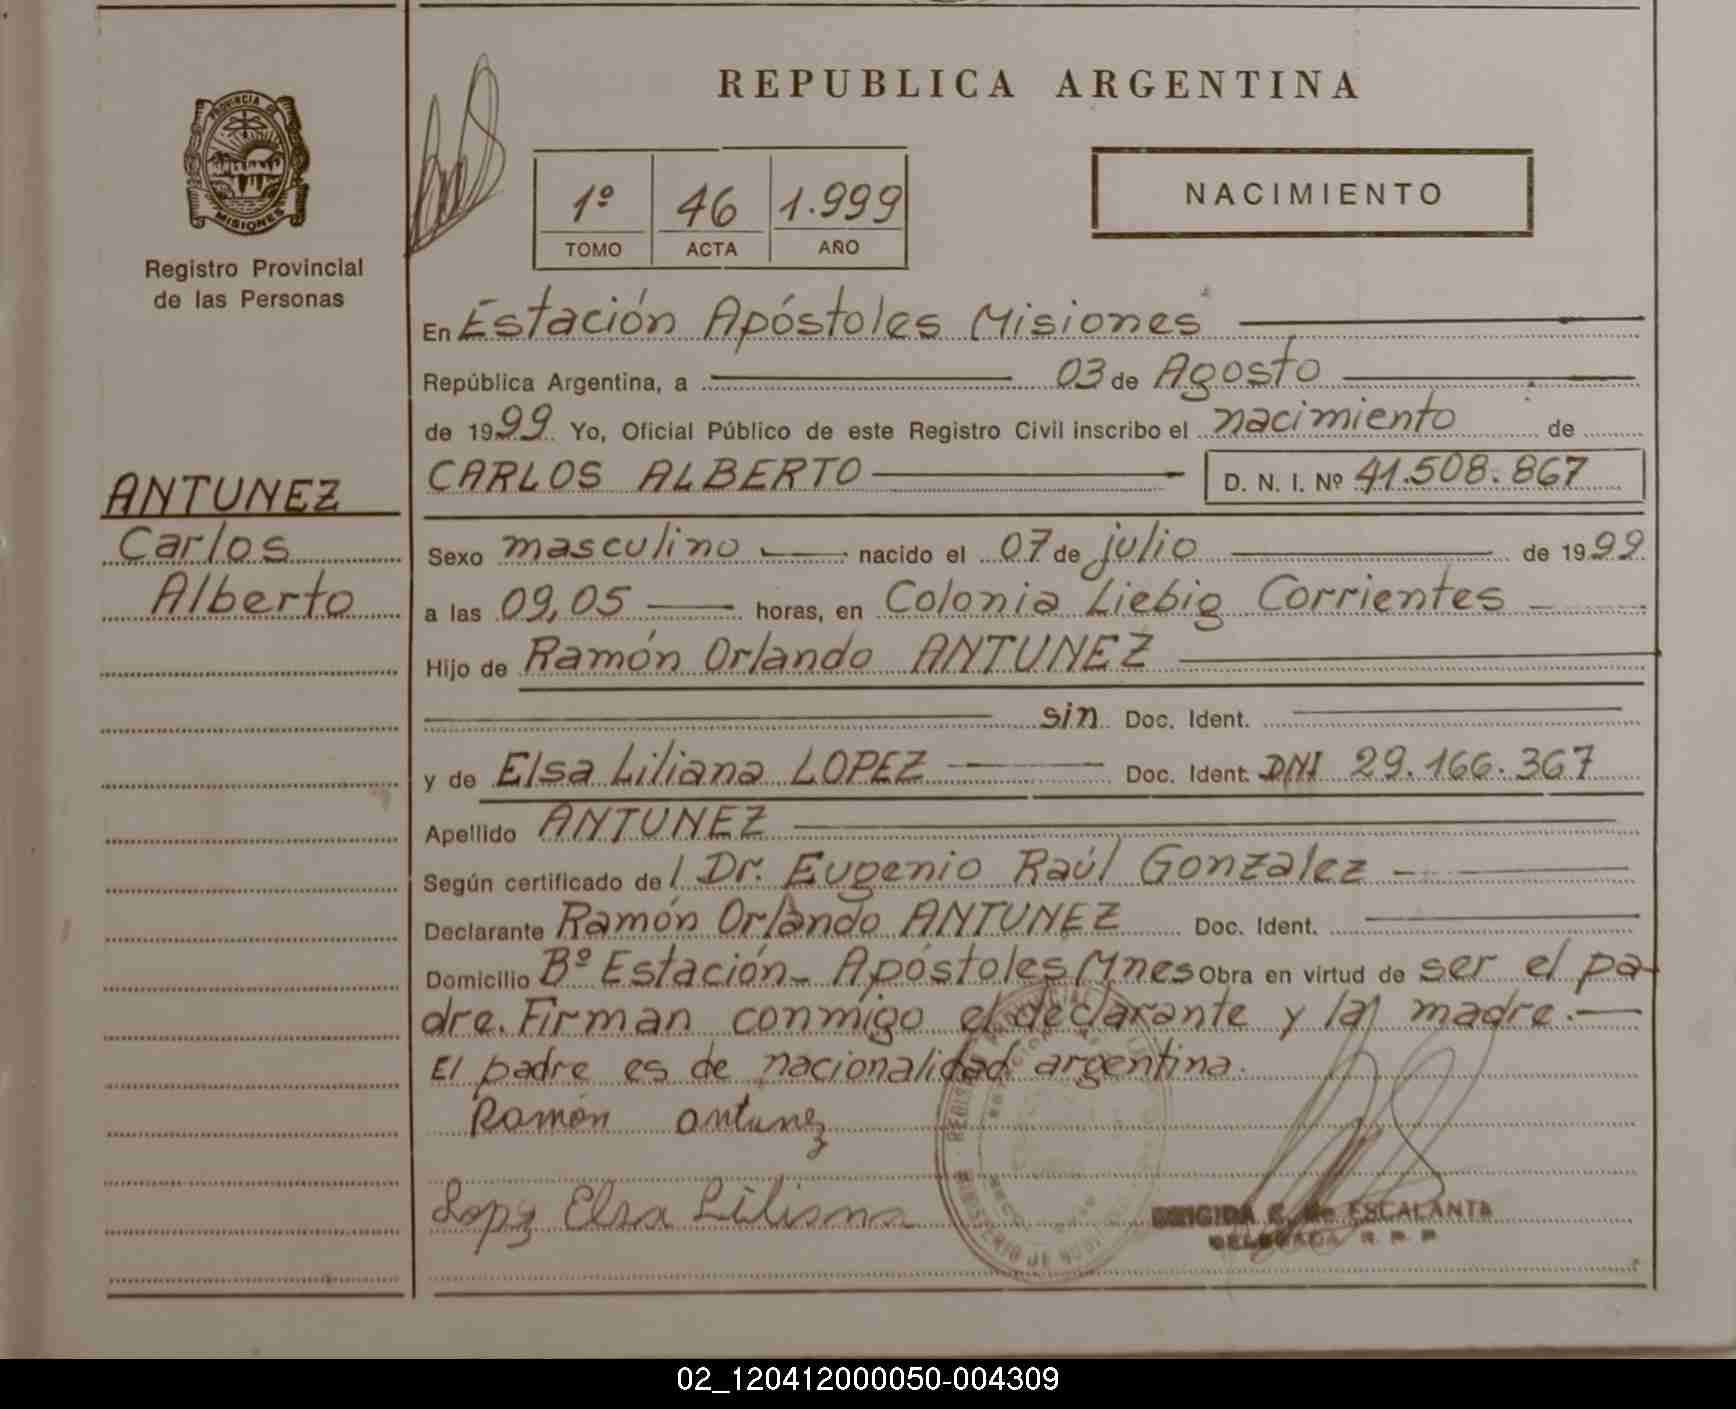 PROVINCIA DE
MISIONES
Registro Provincial
de las Personas
ANTUNEZ
Carlos
Alberto
REPUBLICA ARGENTINA
1º 46 1.999
TOMO ACTA AÑO
NACIMIENTO
En Estación Apóstoles Misiones
República Argentina, a 03 de Agosto
de 1999 Yo, Oficial Público de este Registro Civil inscribo el nacimiento de
CARLOS ALBERTO D. N. I. Nº 41.508.867
Sexo masculino nacido el 07 de julio de 1999
a las 09,05 horas, en Colonia Liebig Corrientes
Hijo de Ramón Orlando ANTUNEZ
sin Doc. Ident.
y de Elsa Liliana LOPEZ Doc. Ident. DNI 29.166.367
Apellido ANTUNEZ
Según certificado del Dr. Eugenio Raúl Gonzalez
Declarante Ramón Orlando ANTUNEZ Doc. Ident.
Domicilio Bº Estación- Apóstoles Mnes Obra en virtud de ser el pa-
dre. Firman conmigo el declarante y la madre.-
El padre es de nacionalidad argentina.
Ramón Antunez
Lopez Elsa Liliana
ESCALANTE
DELEGADA R. P. P.
02_120412000050-004309